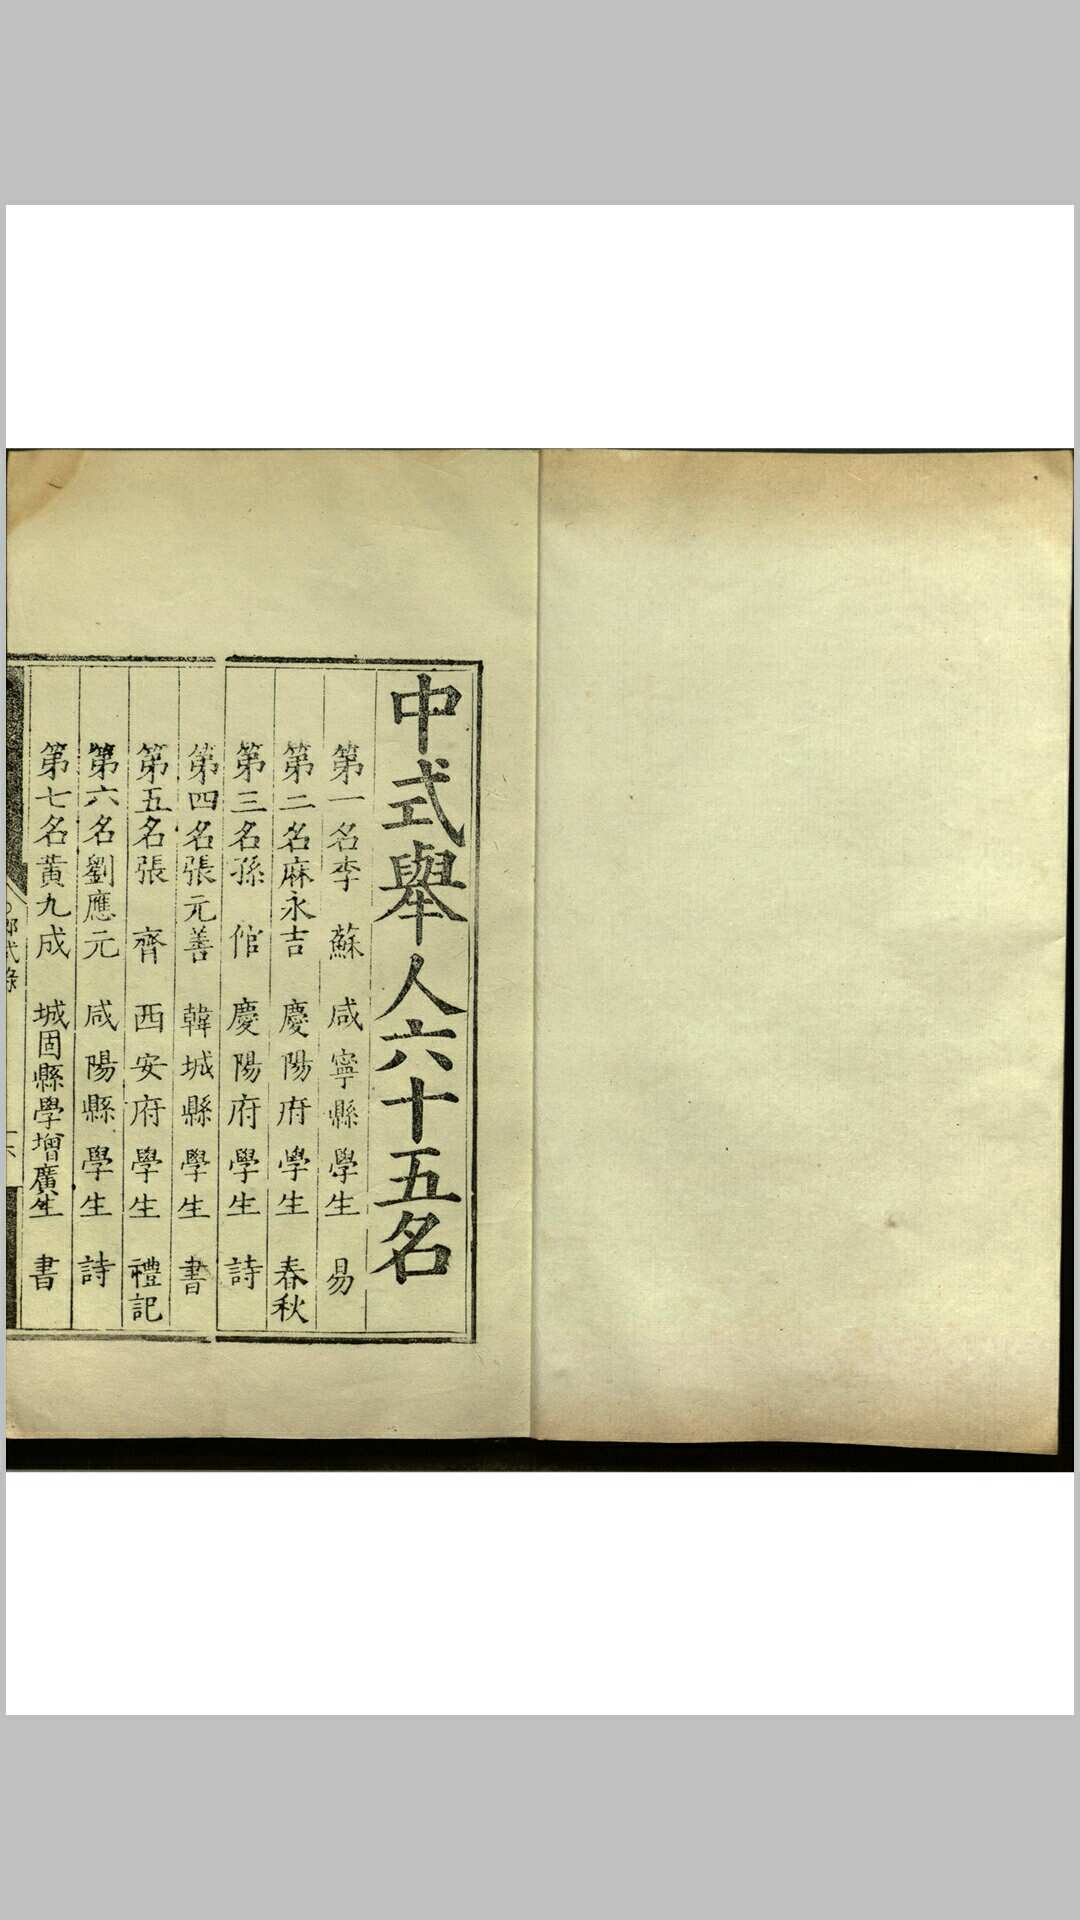 中式舉人六十五名
第一名李 蘇 咸寧縣學生 易
第二名麻永吉 慶陽府學生 春秋
第三名孫 倌 慶陽府學生 詩
第四名張元善 韓城縣學生 書
第五名張 齊 西安府學生 禮記
第六名劉應元 咸陽縣學生 詩
第七名黃九成 城固縣學增廣生 書